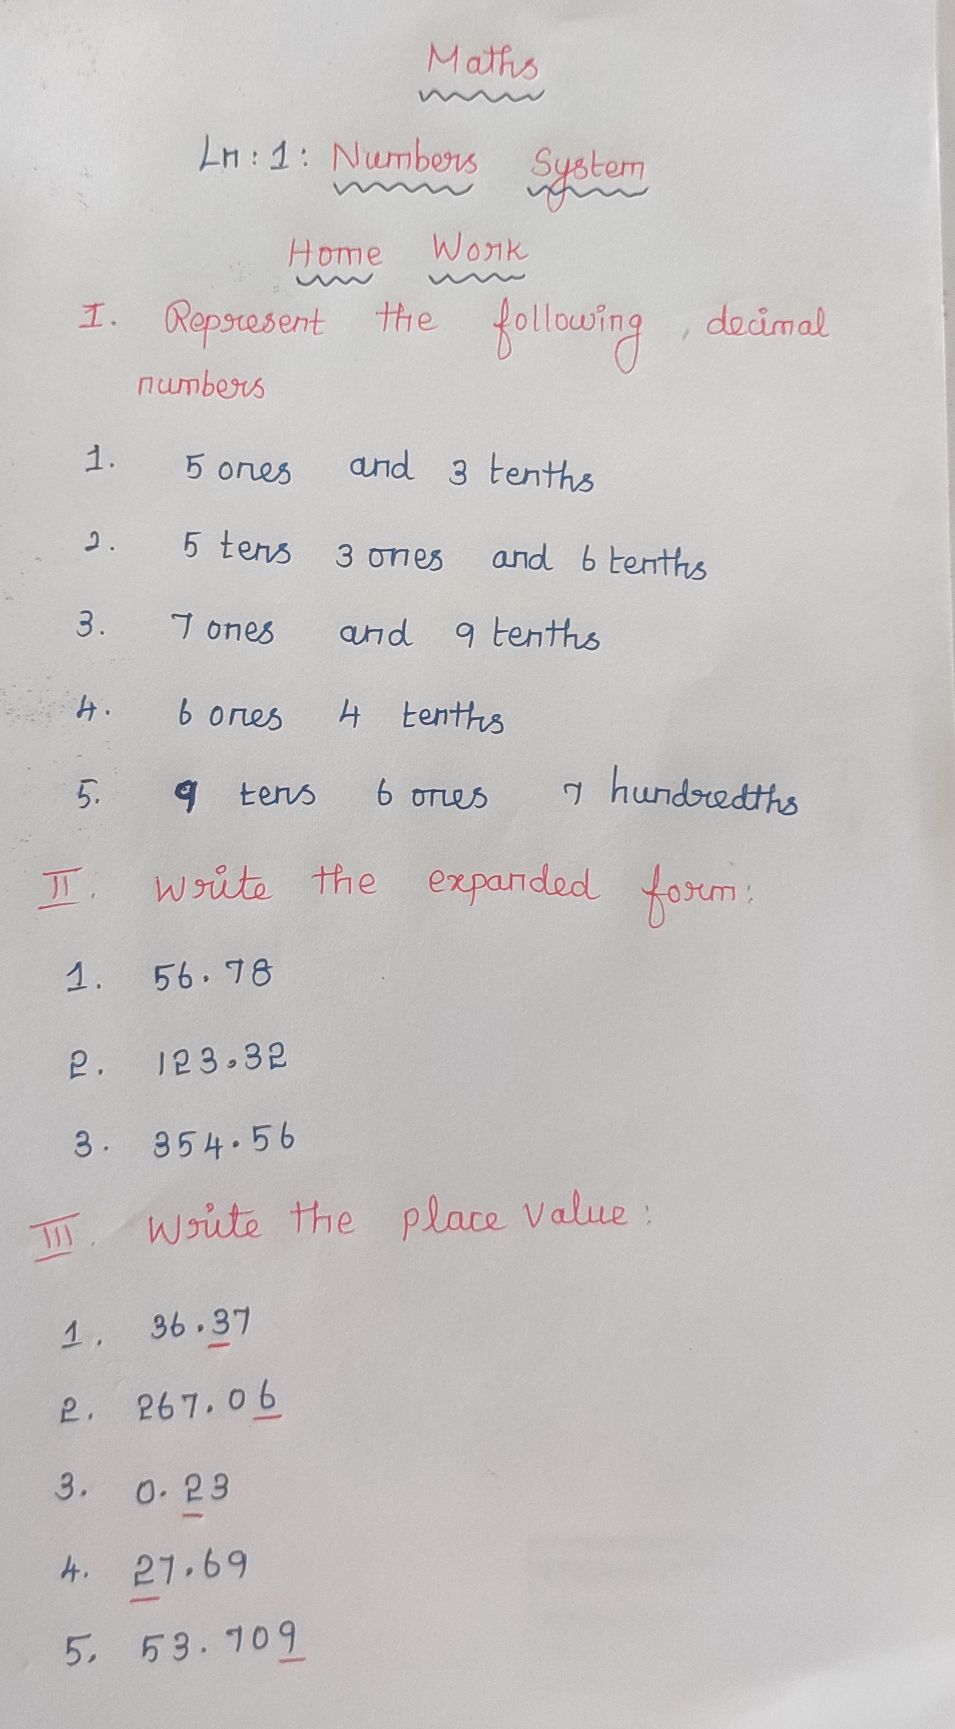 Maths
Ln : 1 : Numbers System
Home Work
I. Represent the following, decimal
numbers
1. 5 ones and 3 tenths
2. 5 tens 3 ones and 6 tenths
3. 7 ones and 9 tenths
4. 6 ones 4 tenths
5. 9 tens 6 ones 7 hundredths
II. Write the expanded form:
1. 56.78
2. 123.32
3. 354.56
III. Write the place value:
1. 36.37
2. 267.06
3. 0.23
4. 27.69
5. 53.709